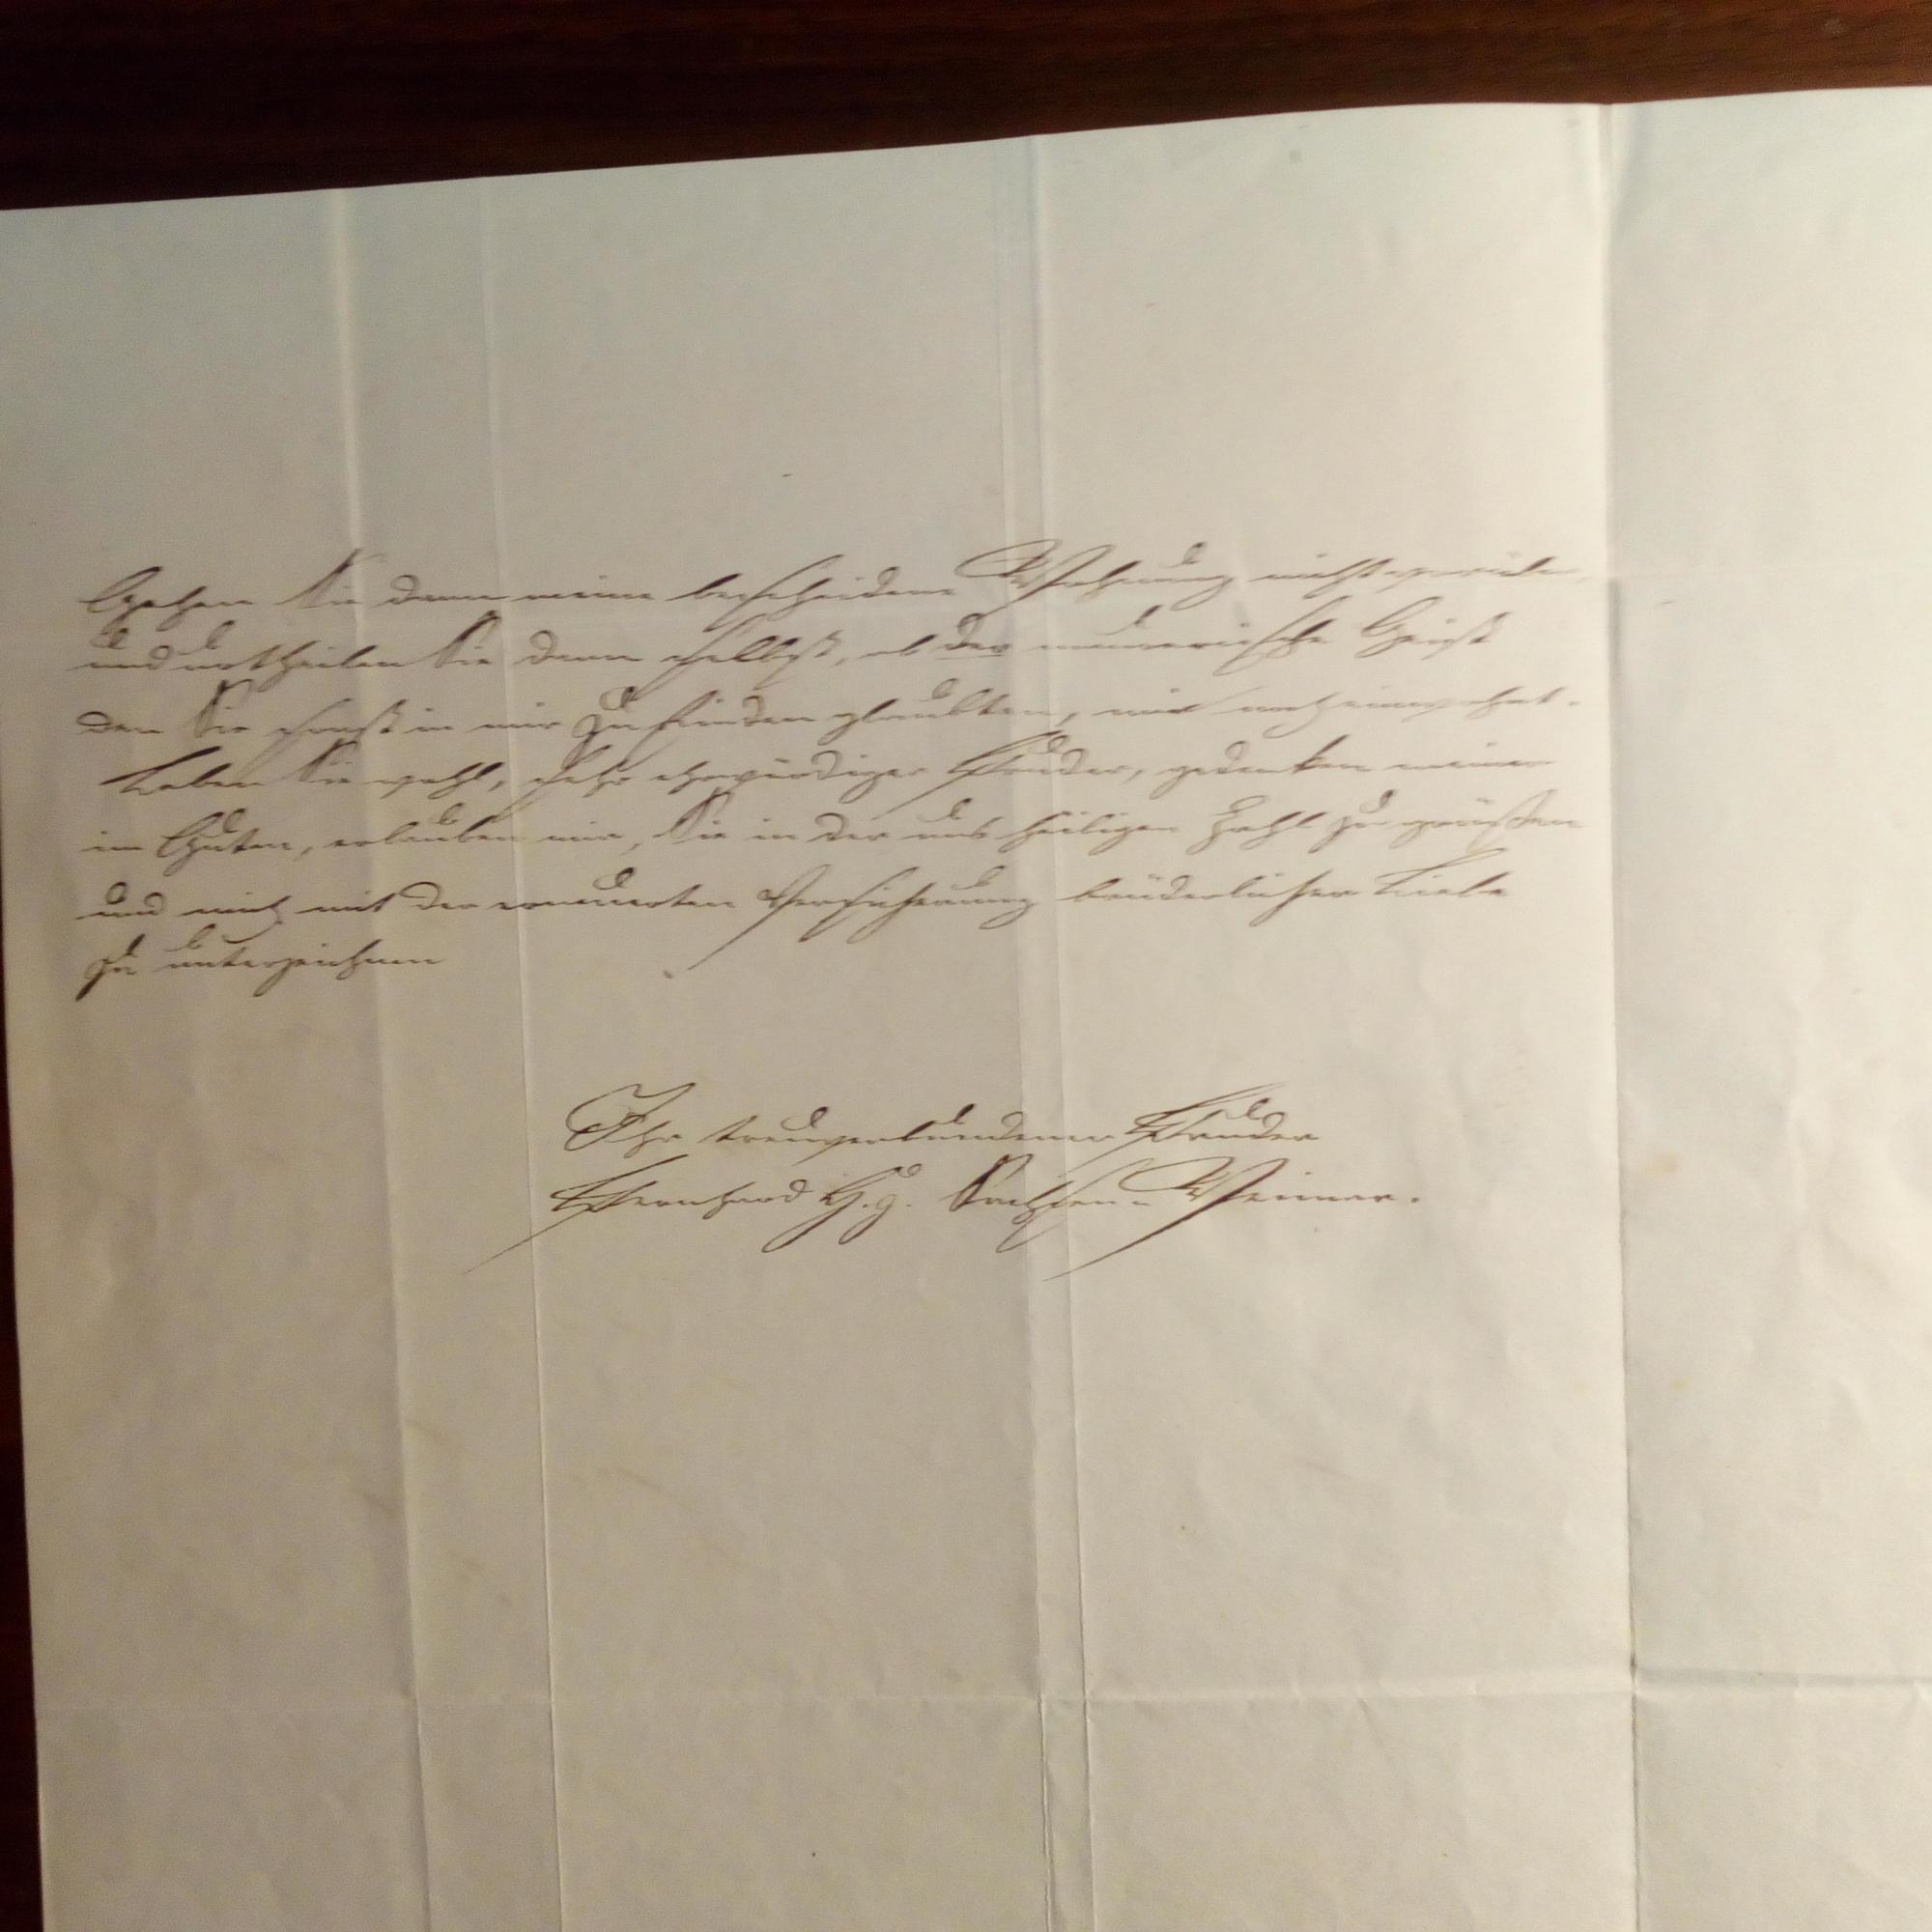 Gehen Sie dann meine bescheidene Wohnung nicht vorüber,
und urtheilen Sie dann selbst, ob der maurerische Geist
den Sie sonst in mir zu finden glaubten, mir noch einwohnt.
Leben Sie wohl, sehr ehrwürdiger Bruder, gedenken meiner
im Guten, erlauben mir, Sie in der uns heiligen Zahl zu grüßen
und mich mit der erneuerten Versicherung brüderlicher Liebe
zu unterzeichnen
Ihr treuverbundener Bruder
Bernhard H. z. Sachsen-Weimar.